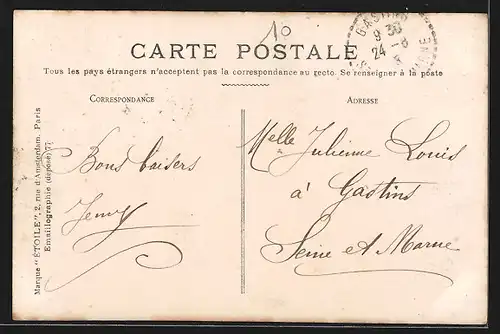 10
GASTINS
9 30
24 - 8
MARNE
CARTE POSTALE
Tous les pays étrangers n'acceptent pas la correspondance au recto. Se renseigner à la poste
CORRESPONDANCE
ADRESSE
Marque "ÉTOILE", 2, rue d'Amsterdam, Paris
Emaillographie (déposé) 77
Bons baisers
Jenny
Melle Julienne Louis
à Gastins
Seine et Marne